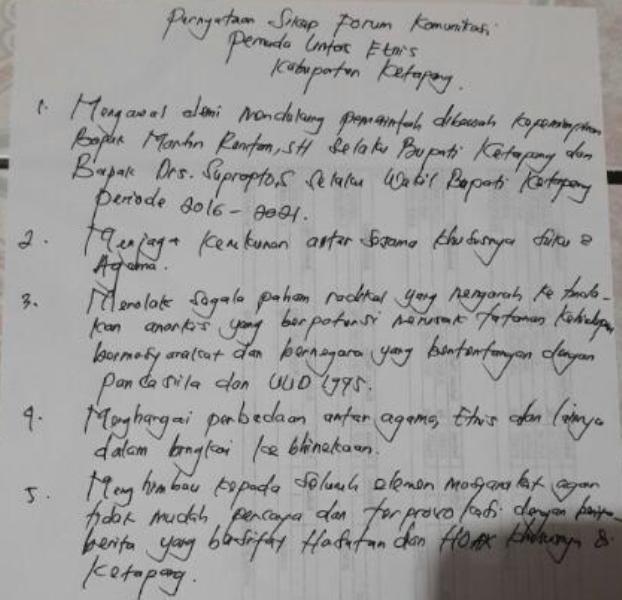 Pernyataan Sikap Forum Komunikasi
Pemuda Lintas Etnis
Kabupaten Ketapang.
1. Mengawal dan mendukung pemerintah dibawah kepemimpinan
Bapak Martin Rantan, SH selaku Bupati Ketapang dan
Bapak Drs. Suprapto, S selaku Wakil Bupati Ketapang
periode 2016 - 2021.
2. Menjaga kerukunan antar sesama khususnya suku &
Agama.
3. Menolak segala paham radikal yang mengarah ke tinda-
kan anarkis yang berpotensi merusak tatanan kehidupan
bermasyarakat dan bernegara yang bertentangan dengan
Pancasila dan UUD 1945.
4. Menghargai perbedaan antar agama, Etnis dan lainya
dalam bingkai kebhinekaan.
5. Menghimbau kepada seluruh elemen masyarakat agar
tidak mudah percaya dan terprovokasi dengan berita-
berita yang bersifat Hasutan dan HOAX khususnya di
Ketapang.